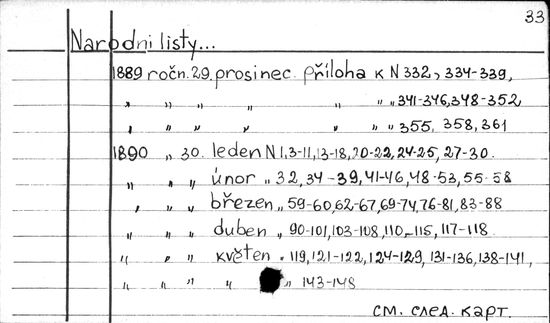 33
Narodni listy...
1889 ročn. 29. prosinec. příloha к N 332, 334-339,
" " " " " " " 341-346, 348-352
" " " " " " " 355, 358, 361
1890 " 30. leden N 1, 3-11, 13-18, 20-22, 24-25, 27-30.
" " " únor " 32, 34-39, 41-46, 48-53, 55-58
" " " březen " 59-60, 62-67, 69-74, 76-81, 83-88
" " " duben " 90-101, 103-108, 110-115, 117-118
" " " květen " 119, 121-122, 124-129, 131-136, 138-141,
" " " " " 143-148
см. след. карт.